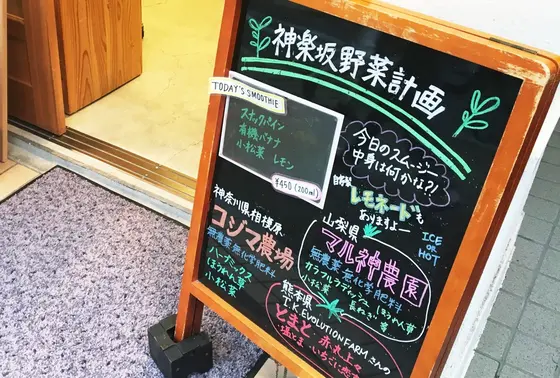 神楽坂野菜計画
TODAY'S SMOOTHIE
スナックパイン
有機バナナ
小松菜 レモン
¥450 (200ml)
今日のスムージー
中身は何かな?!
自家製
レモネードも
ありますよー
ICE
OR
HOT
神奈川県相模原
コジマ農場
無農薬 無化学肥料
ハーブミックス
ほうれん草
小松菜
山梨県
マル神農園
無農薬 無化学肥料
カラフルラディッシュ ほうれん草
小松菜 長ねぎ
熊本県
T.K EVOLUTION FARM さんの
とまと
塩とま いちご